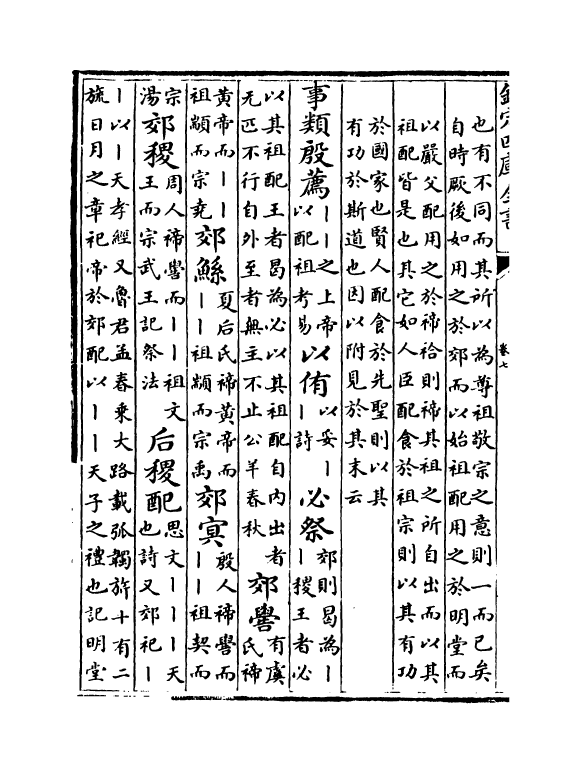 欽定四庫全書 卷七
也有不同而其所以為尊祖敬宗之意則一而已矣
自時厥後如用之於郊而以始祖配用之於明堂而
以嚴父配用之於禘祫則禘其祖之所自出而以其
祖配皆是也其它如人臣配食於祖宗則以其有功
於國家也賢人配食於先聖則以其
有功於斯道也因以附見於其末云
事類殷薦｜｜之上帝以配祖考易以侑以妥｜｜詩必祭郊則曷為｜｜稷王者必
以其祖配王者曷為必以其祖配自内出者无匹不行自外至者無主不止公羊春秋郊嚳有虞氏禘
黃帝而｜｜祖顓而宗堯郊鯀夏后氏禘黃帝而｜｜祖顓而宗禹郊冥殷人禘嚳而｜｜祖契而
宗湯郊稷周人禘嚳而｜｜祖文王而宗武王記祭法后稷配思文｜｜｜天也詩又郊祀｜
｜以｜天孝經又魯君孟春乘大路載弧韣旂十有二旒日月之章祀帝於郊配以｜｜天子之禮也記明堂